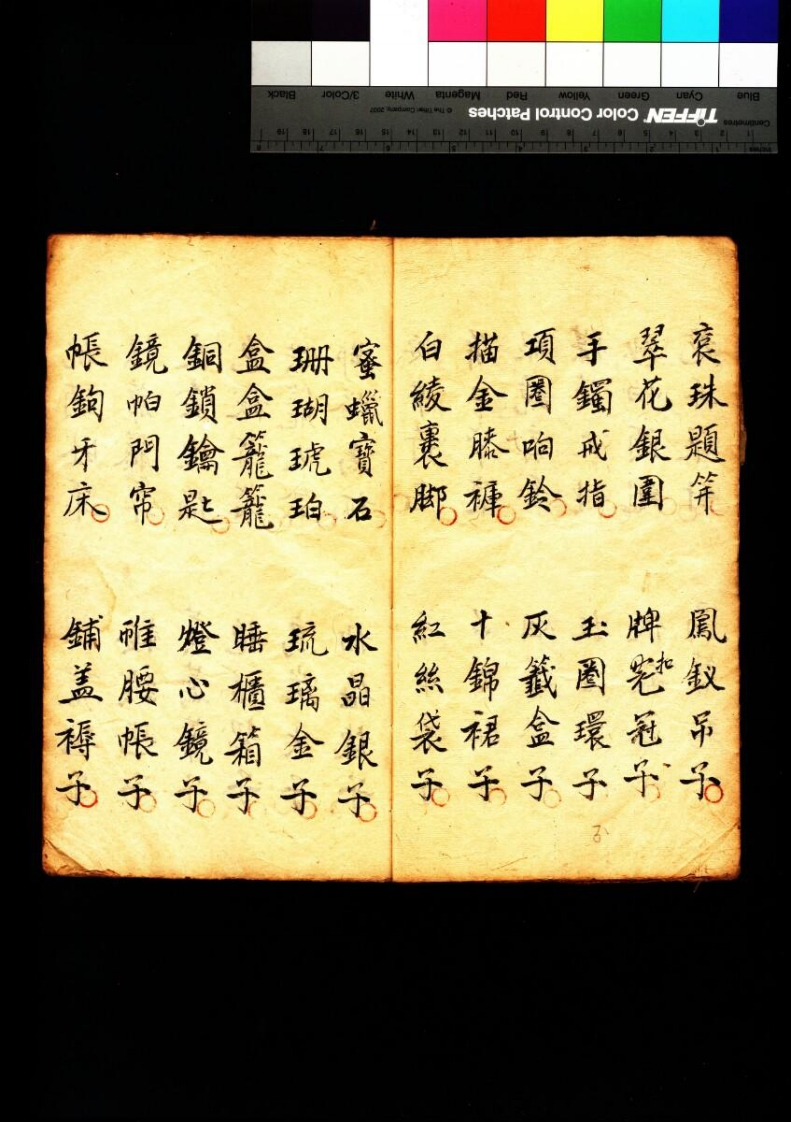 Blue Cyan Green Yellow Red Magenta White 3/Color Black
TIFFEN Color Control Patches © The Tiffen Company, 2007
Centimetres
Inches
珠題笄 鳳釵吊子
翠花銀圍 牌冠子
扣
手鐲戒指 玉圈環子
項圈响鈴 灰籤盒子
描金膝褲 十錦裙子
白綾裹脚 紅絲袋子
蜜蠟寶石 水晶銀子
珊瑚琥珀 琉璃金子
盒盒籠籠 睡櫃箱子
銅鎖鑰匙 燈心鏡子
鏡帕門帘 帷腰帳子
帳鉤牙床 鋪盖褥子